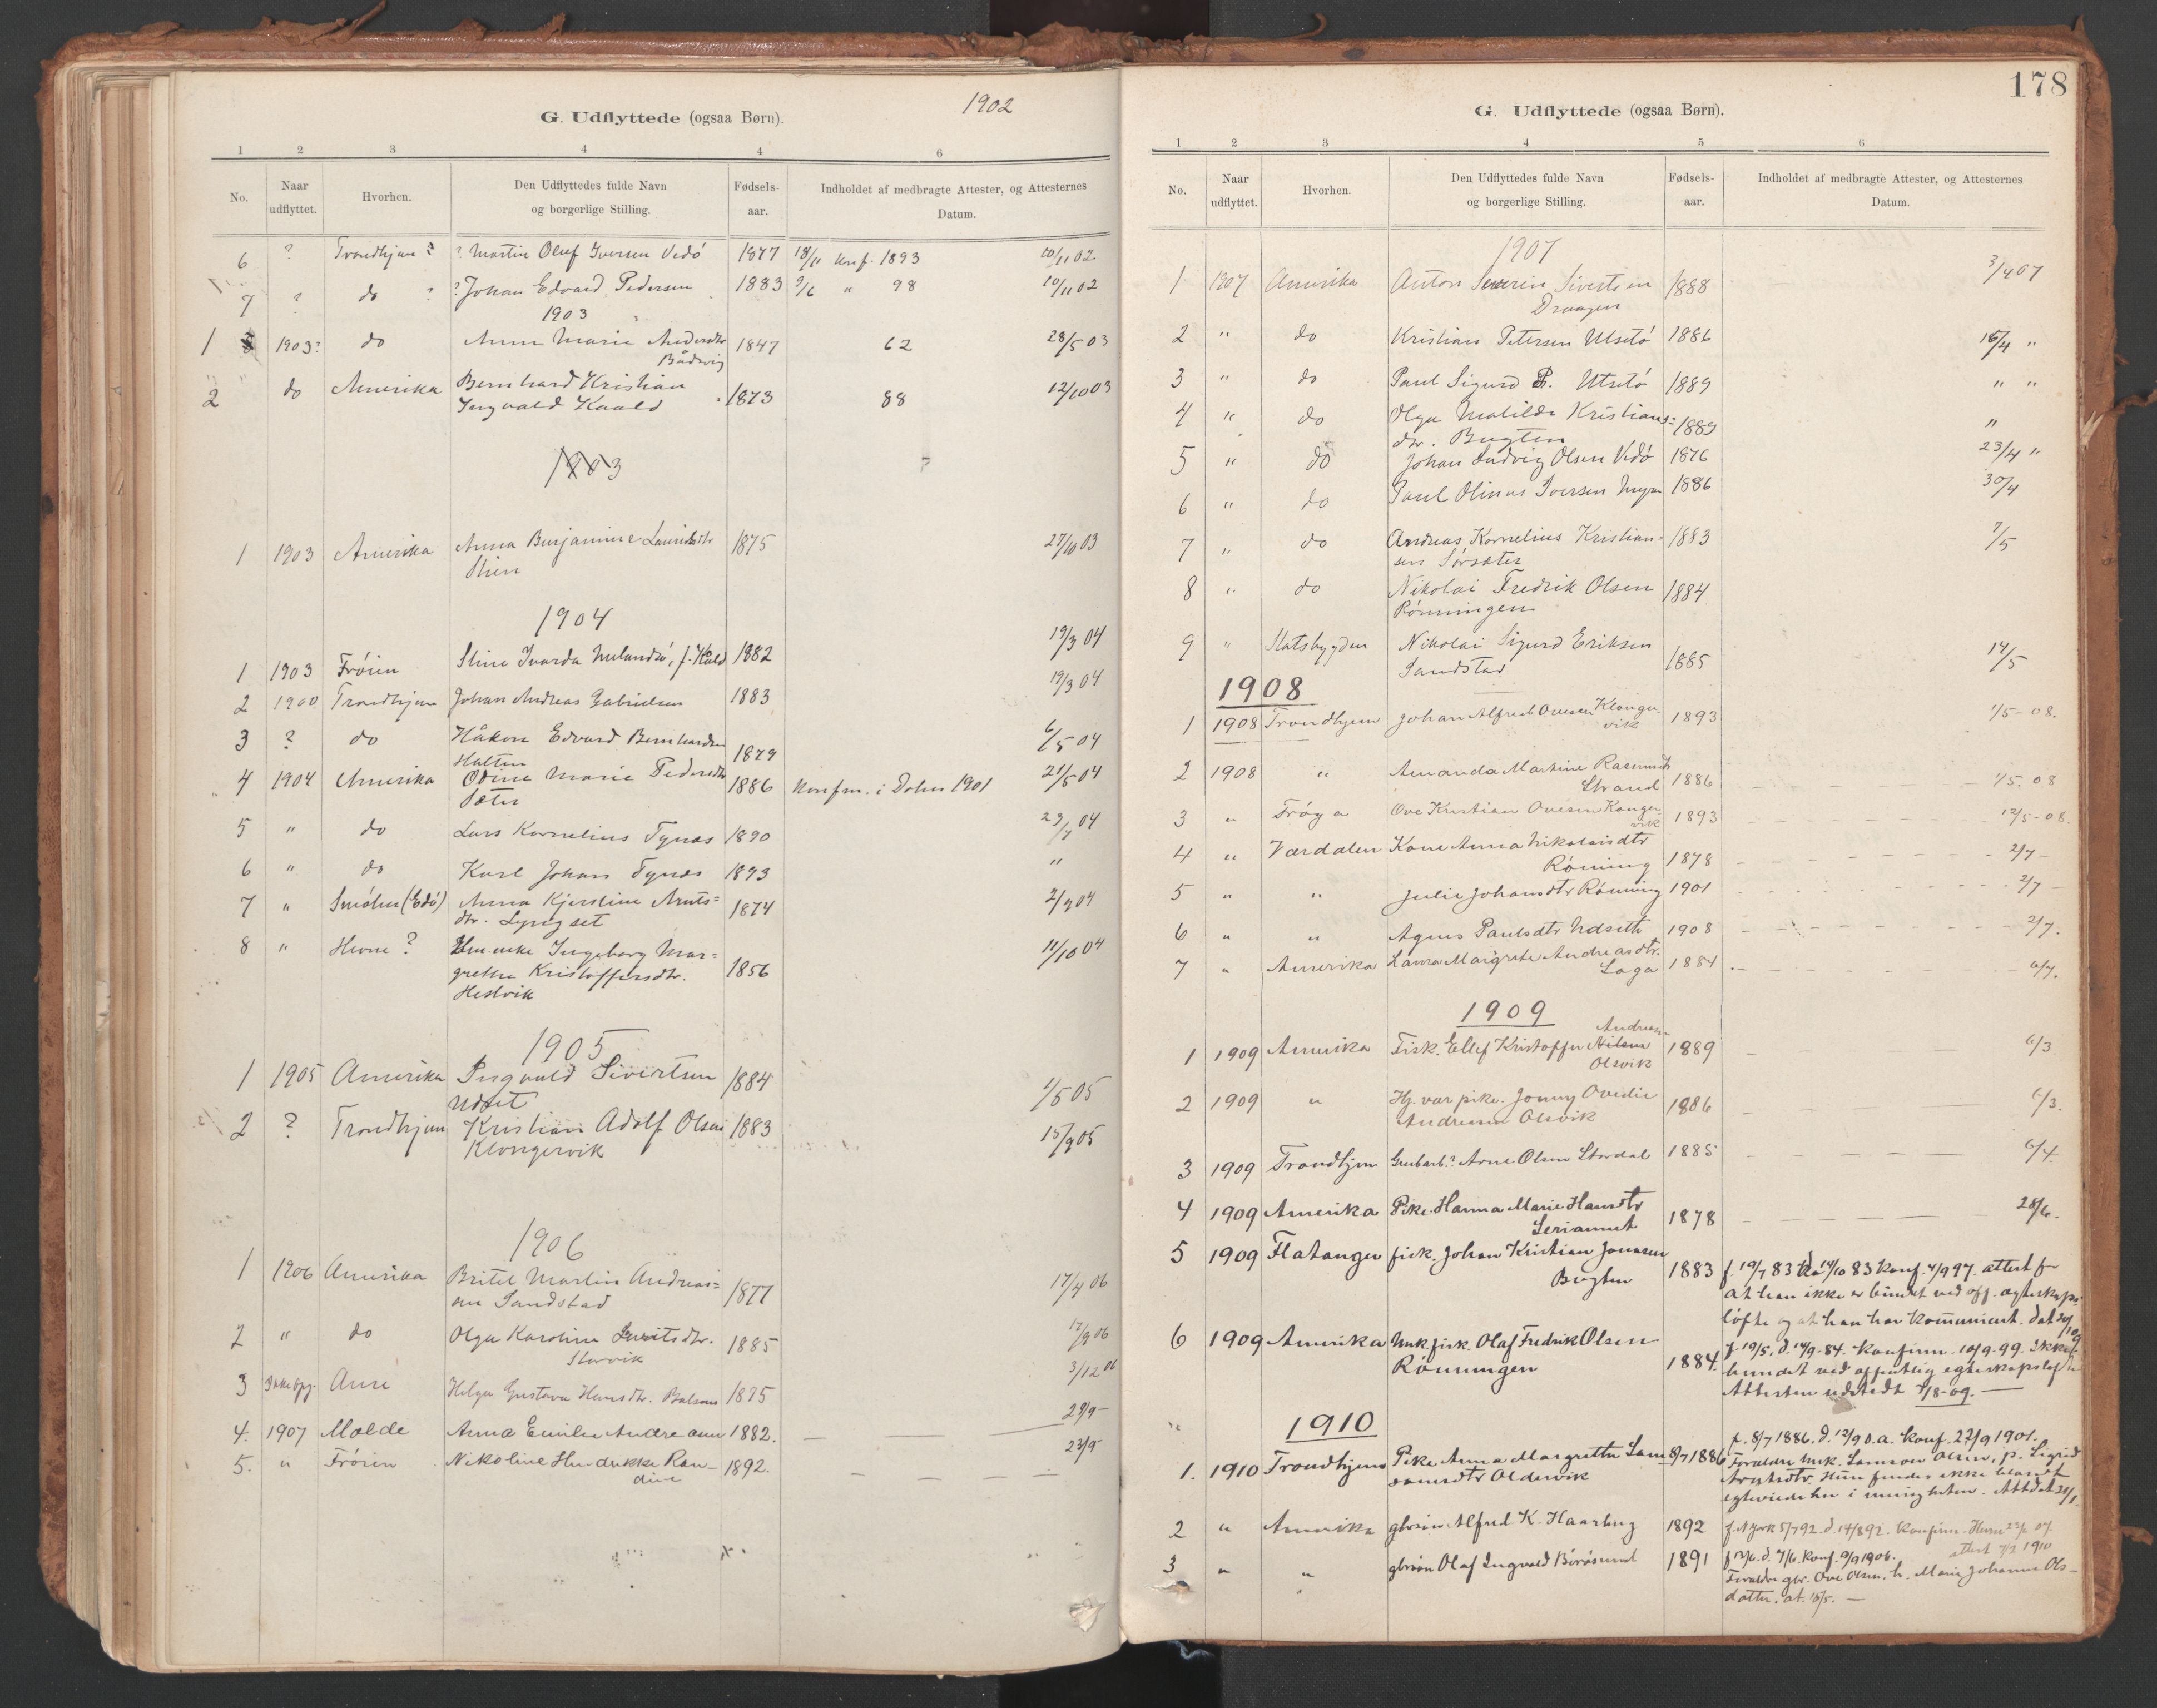 1902
G. Udflyttede (ogsaa Børn).
1 2 3 4 4 6
No. Naar udflyttet. Hvorhen. Den Udflyttedes fulde Navn og borgerlige Stilling. Fødsels-aar. Indholdet af medbragte Attester, og Attesternes Datum.
6 ? Trondhjem ? ? Martin Oluf Iversen Vedø 1877 18/11 Konf. 1893 10/11 02.
7 ? do ? ? Johan Edvard Pedersen 1883 9/6 " 98 10/11 02
1903
1 1903? do Anne Marie Andersdtr 1847 62 28/5 03
Bådsvig
2 do Amerika Bernhard Kristian
Ingvald Kaald 1873 88 12/10 03
1903
1 1903 Amerika Anna Benjamine Lauritsdtr 1875 27/10 03
Stien
1904
1 1903 Frøien Stine Ivarda Melandsø, f. Kald 1882 19/3 04
2 1900 Trondhjem Johan Andreas Gabrielsen 1883 19/3 04
3 ? do Håkon Edvard Bernhardsen 1879 6/5 04
Halten
4 1904 Amerika Odine Marie Pedersdtr 1886 Konfm. i Dolm 1901 21/5 04
Sæter
5 " do Lars Kornelius Tynæs 1890 23/7 04
6 " do Karl Johan Tynæs 1893 "
7 " Smølen (Edø) Anna Kjerstine Arnts=
dtr. Lyngset 1874 2/9 04
8 " Hevne ? Enke Ingeborg Mar=
grethe Kristoffersdtr. 1856 11/10 04
Hestvik
1905
1 1905 Amerika Ingvald Sivertsen 1884 1/5 05
Udset
2 ? Trondhjem Kristian Adolf Olsen 1883 15/9 05
Klongervik
1906
1 1906 Amerika Britel Martin Andreas=
sen Sandstad 1877 17/4 06
2 " do Olga Karoline Lauritsdtr. 1885 17/9 06
Storvik
3 Ikke opg. Aure Helga Gustava Hansdtr. Balsnes 1875 3/12 06
4. 1907 Molde Anna Emilie Andreasen 1882. 23/9 -
5. " Frøien Nikoline Hendrikke Ran-
dine 1892. 23/9 -
178
G. Udflyttede (ogsaa Børn).
1 2 3 4 5 6
No. Naar udflyttet. Hvorhen. Den Udflyttedes fulde Navn og borgerlige Stilling. Fødsels-aar. Indholdet af medbragte Attester, og Attesternes Datum.
1907
1 1907 Amerika Anton Severin Sivertsen 1888 3/4 07
Draagen
2 " do Kristian Petersen Utsetø 1886 16/4 "
3 " do Paul Sigurd P. Utsetø 1889 " "
4 " do Olga Matilde Kristians=
dtr. Bugten 1889 "
5 " do Johan Ludvig Olsen Vedø 1876 23/4 "
6 " do Paul Olinus Iversen Myren 1886 30/4
7 " do Andreas Kornelius Kristian=
sen Sørsæter 1883 7/5
8 " do Nikolai Fredrik Olsen 1884
Rønningen
9 " Statsbygden Nikolai Sigurd Eriksen
Sandstad 1885 14/5
1908
1 1908 Trondhjem Johan Alfred Ovesen Klonger-
vik 1893 1/5 - 08.
2 1908 " Amanda Martine Rasmusdtr
Strand 1886 1/5. 08
3 " Frøya Ove Kristian Ovesen Konger
vik 1893 12/5 - 08.
4 " Værdalen Kone Anna Nikolaisdtr
Røning 1878 2/7 -
5 " " Julie Johansdtr Rønning 1901 2/7 -
6 " " Agnes Paulsdtr Udseth 1908 2/7.
7 " Amerika Laura Margrete Andreasdtr.
Laga 1884 6/7.
1909
1 1909 Amerika Fisk. Ellef Kristoffer Nilsen Andreas-
Olsvik 1889 6/3
2 1909 " Hj. vær. pike. Jonny Ovedie
Andresen Olsvik 1886 6/3.
3 1909 Trondhjem Grubarb.? Arne Olsen Stordal 1885 6/4.
4 1909 Amerika Pike. Hanna Marie Hansdtr
1878 28/6.
5 1909 Flatanger fisk. Johan Kristian Jonasen
Bugten 1883 f. 19/7 83 dø 14/10 83 Konf. 4/9 97. attest for
at han ikke er bundet ved off. ægteskaps-
løfte og at han har kommunicert. dat
6 1909 Amerika Unk. fisk. Olaf Fredrik Olsen
Rønningen 1884. f. 19/5. d. 14/9 - 84. Konfirm. 10/9 - 99. Ikke
bundet ved offentlig egteskapsløfte
Attesten udstedt 7/8 - 09.
1910
1. 1910 Trondhjem Pike Anna Margrethe Sam
sonsdtr Oldervik 8/7 1886 f. 8/7 1886. d. 12/9 s.a. Konf. 22/9 1901.
Foreldre Unk. Samson Olsen, p. Sigrid
Arntsdtr. Hun findes ikke blandt
egteviede her i menigheten. Att dat
2 " Amerika gbrsøn Alfred K. Haarberg 1892 f. N. York 5/7 92. d. 14/8 92. Konfirm. Hevne
attest 1910
3 " " gbrsøn Olaf Ingvald Børøsund 1891 Konf. 9/9 1906.
Foreldre gbr. Ove Olsen, h. Marie Johanna Ols-
datter. at. 18/5.